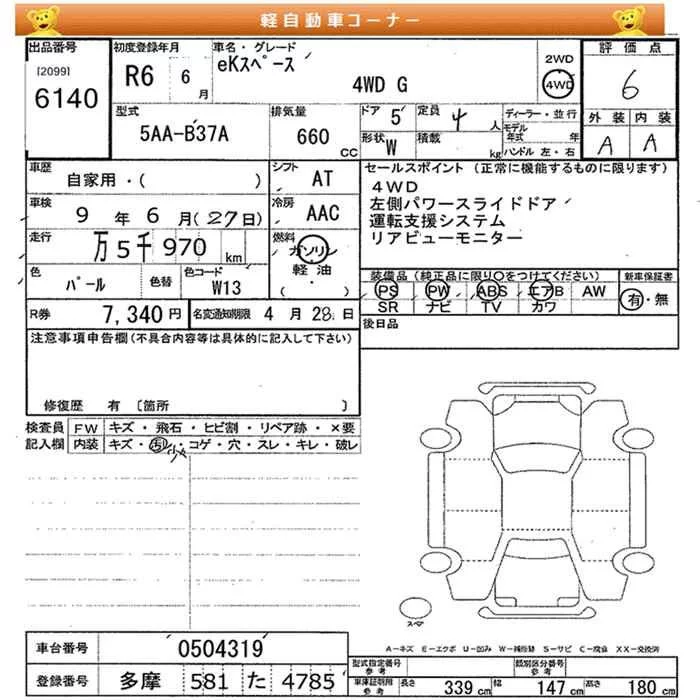 軽自動車コーナー
出品番号
[2099]
6140
初度登録年月
R6 6月
車名・グレード
eKスペース
4WD G
2WD
4WD
評価点
6
外装 内装
A A
型式
5AA-B37A
排気量
660 CC
ドア 5
定員 4 人
ディーラー・並行
モデル年式 年
形状 W
積載 kg
ハンドル 左・右
車歴
自家用・( )
シフト
AT
車検
9 年 6 月(27日)
冷房
AAC
走行
万5千970 km
燃料
ガソリン
軽油
( ・ )
色
パール
色替
色コード
W13
R券
7,340円
名変通知期限 4 月 28 日
セールスポイント(正常に機能するものに限ります)
4WD
左側パワースライドドア
運転支援システム
リアビューモニター
装備品(純正品に限り○をつけてください)
新車保証書
PS PW ABS エアB AW
SR ナビ TV カワ
有・無
後日品
注意事項申告欄(不具合内容等は具体的に記入して下さい)
修復歴 有 〔箇所 〕
検査員記入欄
FW キズ・飛石・ヒビ割・リペア跡・×要
内装 キズ・汚・コゲ・穴・スレ・キレ・破レ
小
スペア
A-キズ E-エクボ U-凹み W-補修跡 S-サビ C-腐食 XX-交換済
車台番号
0504319
登録番号
多摩 581 た 4785
型式指定番号 参考
類別区分番号 参考
車庫証明用 参考
長さ 339 cm
幅 147 cm
高さ 180 cm